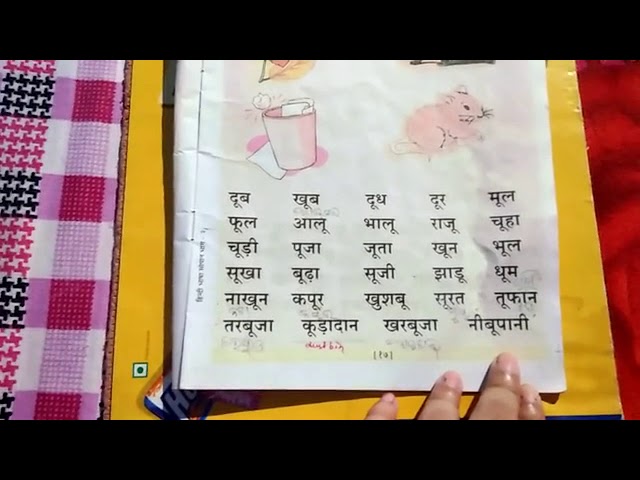 दूब खूब दूध दूर मूल
फूल आलू भालू राजू चूहा
चूड़ी पूजा जूता खून भूल
सूखा बूढ़ा सूजी झाडू धूम
नाखून कपूर खुशबू सूरत तूफान
तरबूजा कूड़ादान खरबूजा नीबूपानी
dustbin